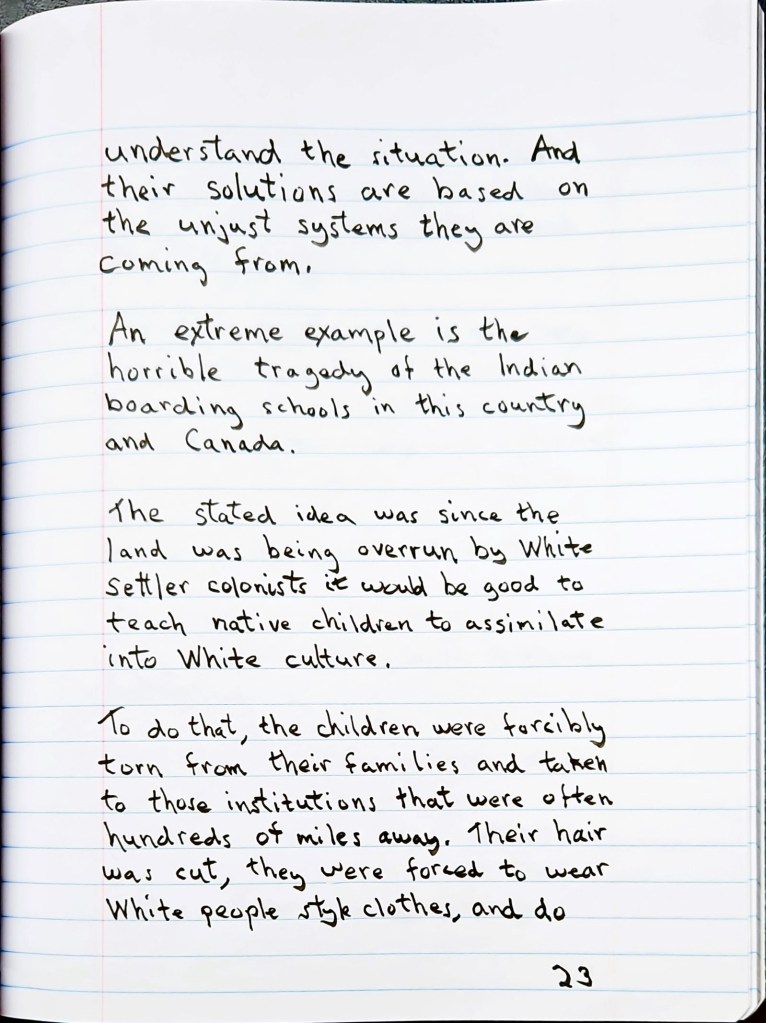 understand the situation. And
their solutions are based on
the unjust systems they are
coming from.
An extreme example is the
horrible tragedy of the Indian
boarding schools in this country
and Canada.
The stated idea was since the
land was being overrun by White
settler colonists it would be good to
teach native children to assimilate
into White culture.
To do that, the children were forcibly
torn from their families and taken
to those institutions that were often
hundreds of miles away. Their hair
was cut, they were forced to wear
White people style clothes, and do
23